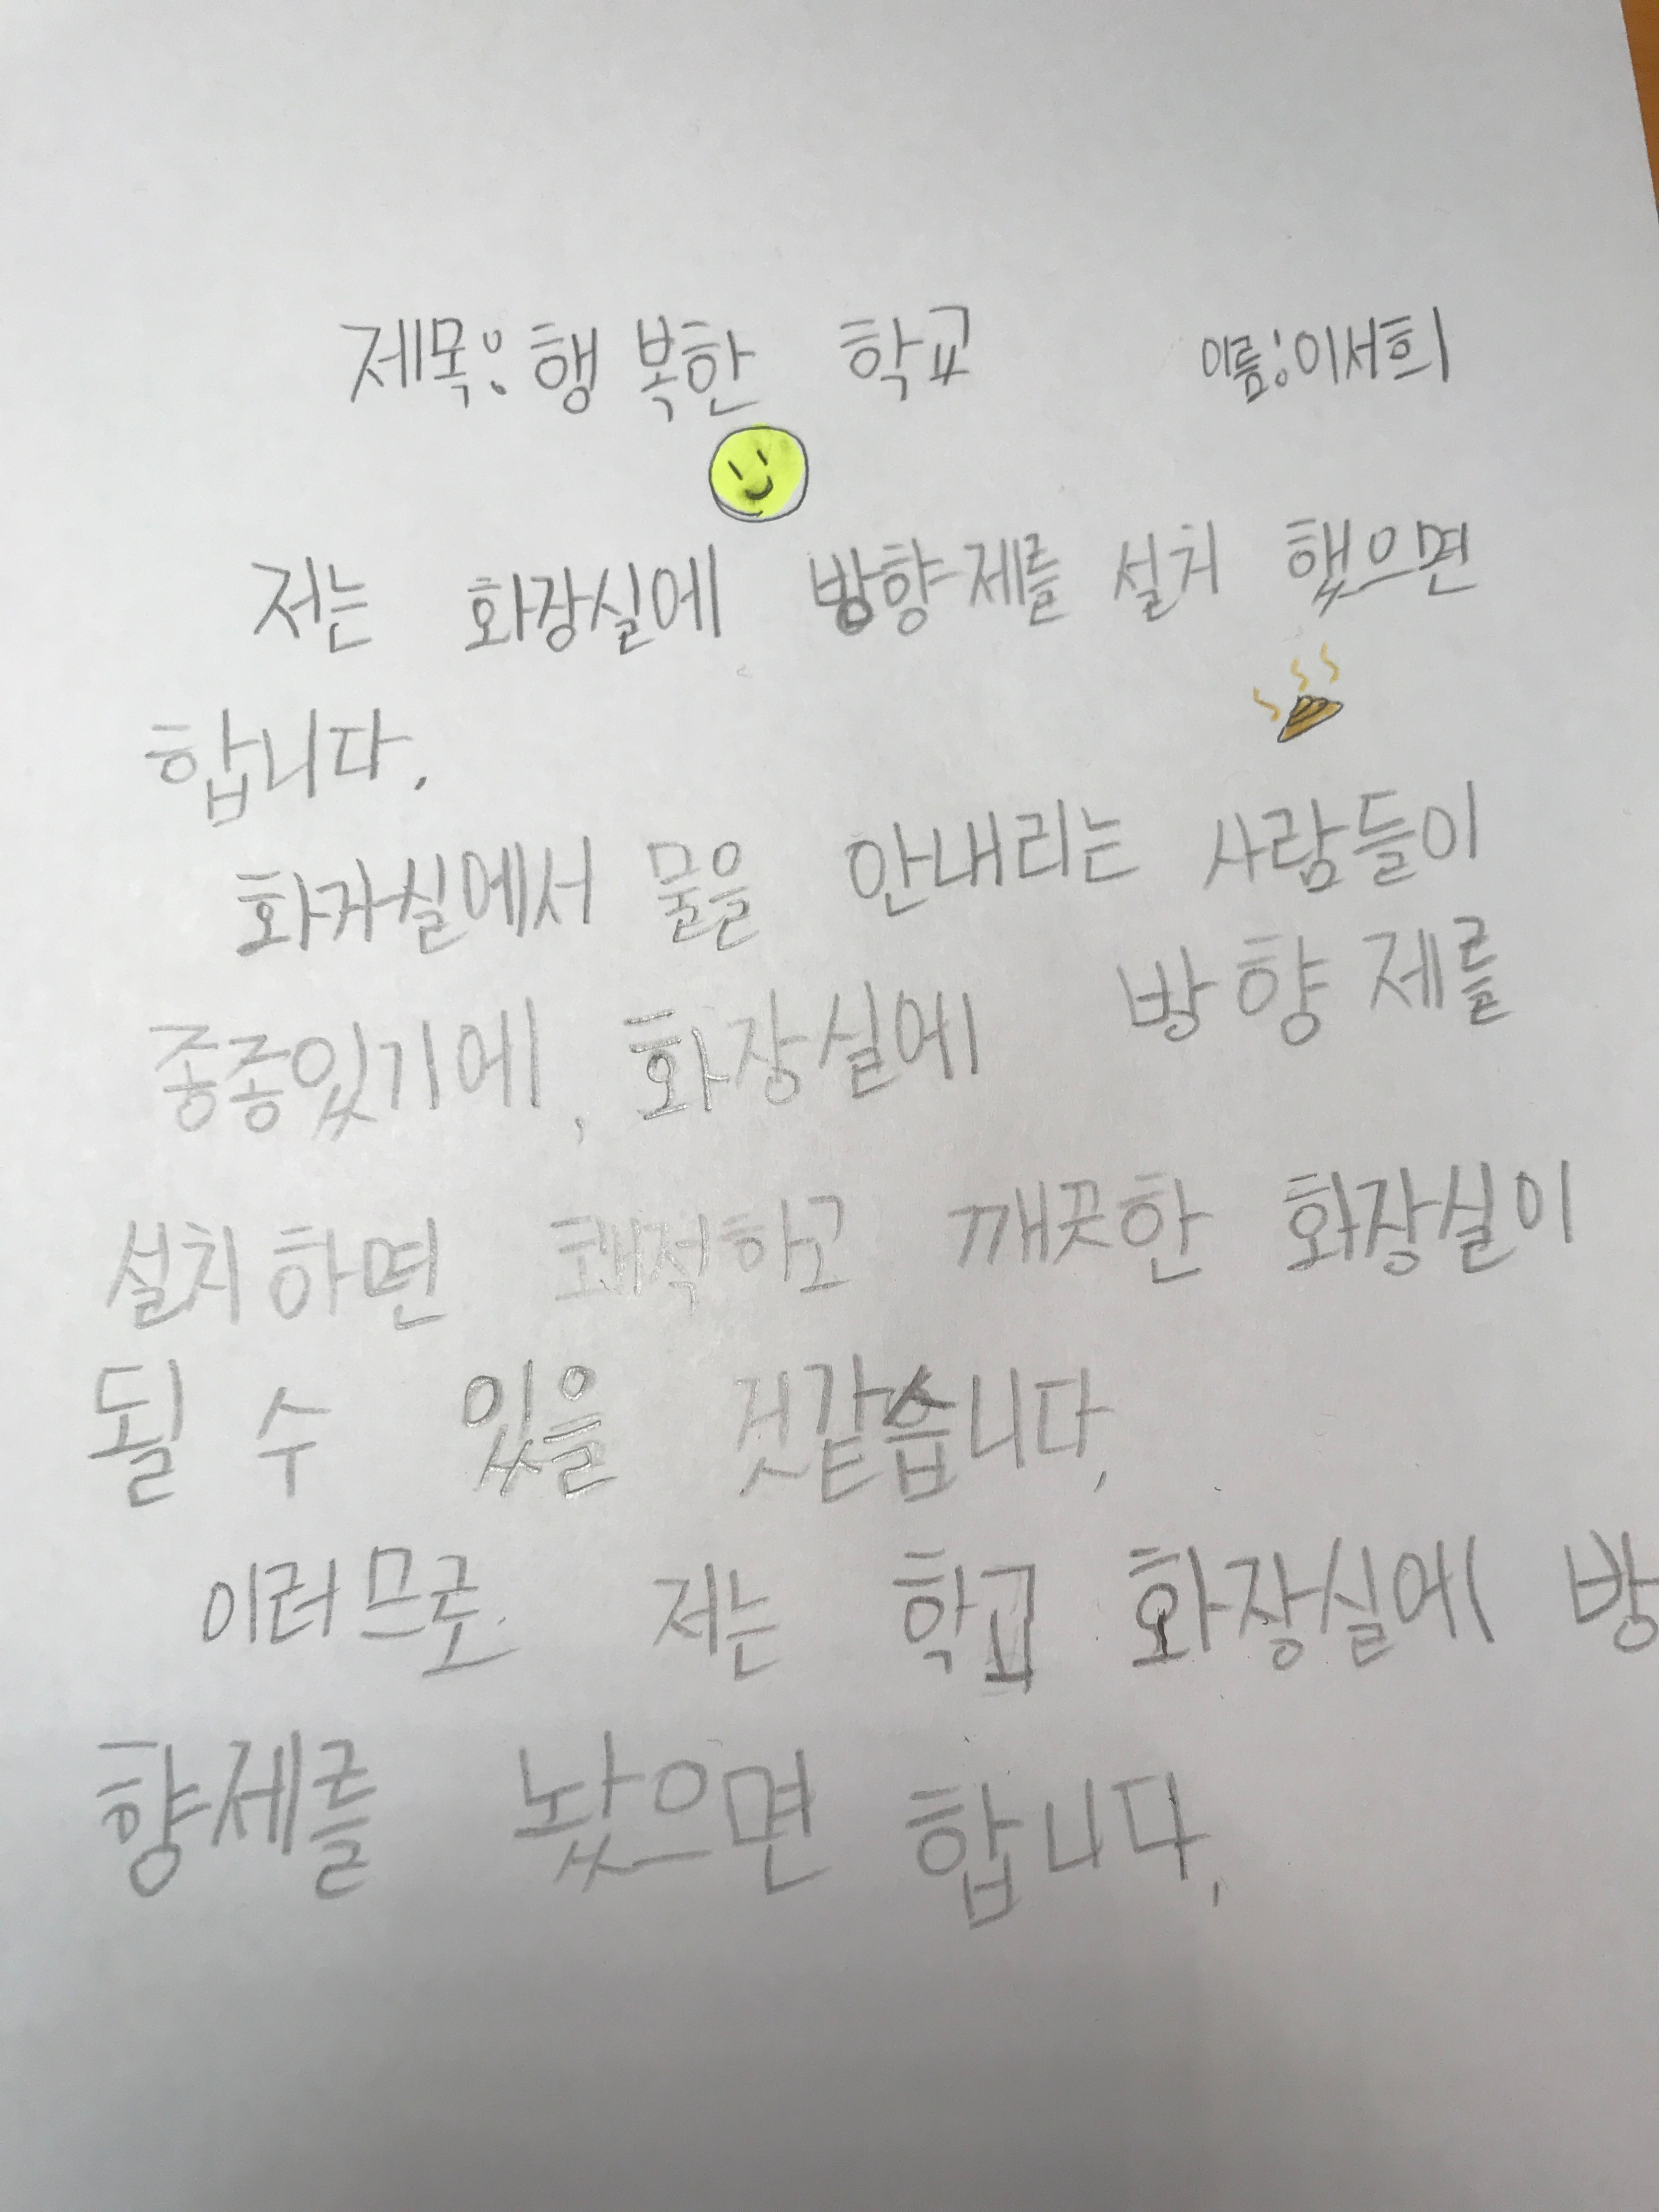 제목: 행복한 학교 이름: 이서희
저는 화장실에 방향제를 설치 했으면
합니다.
화자실에서 물을 안내리는 사람들이
종종있기에, 화장실에 방향제를
설치하면 쾌적하고 깨끗한 화장실이
될 수 있을 것같습니다.
이러므로 저는 학교 화장실에 방
향제를 놨으면 합니다.